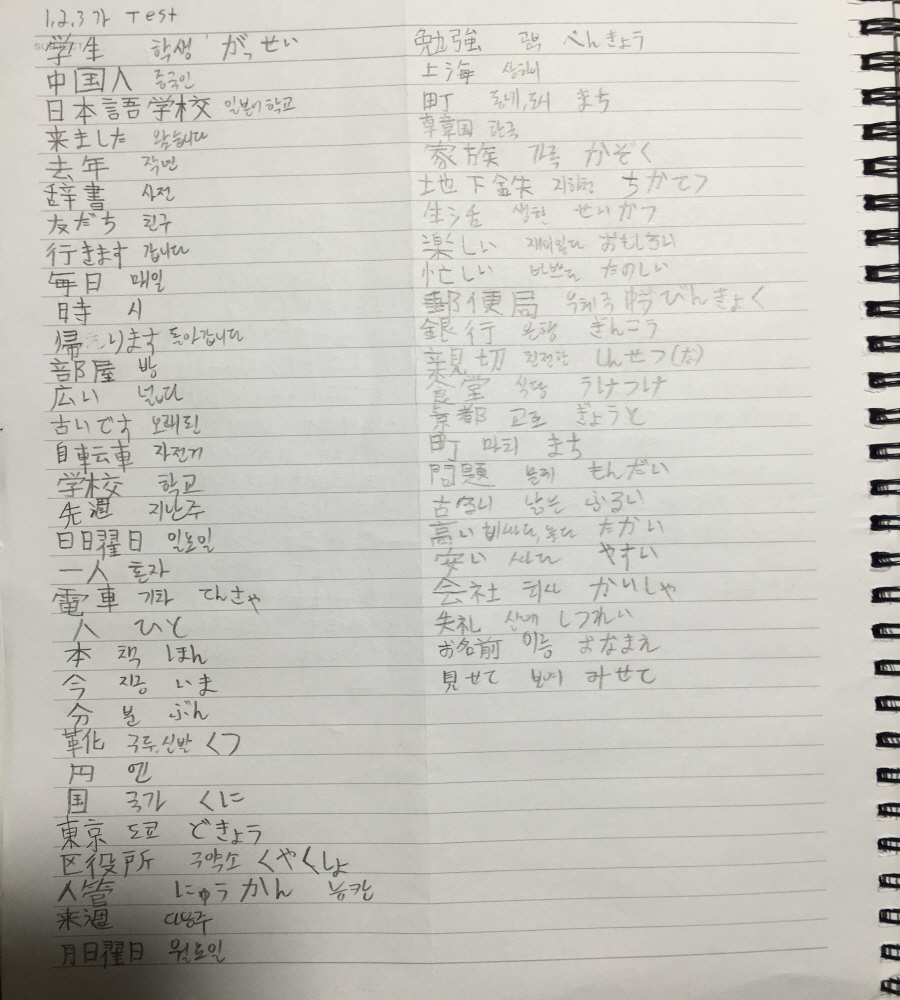 1,2,3 가 Test
学生 학생 がっせい
中国人 중국인
日本語学校 일본어학교
来ました 왔습니다
去年 작년
辞書 사전
友だち 친구
行きます 갑니다
毎日 매일
時 시
帰ります 돌아갑니다
部屋 방
広い 넓다
古いです 오래된
自転車 자전거
学校 학교
先週 지난주
日曜日 일요일
一人 혼자
電車 기차 でんきゃ
人 ひと
本 책 ほん
今 지금 いま
分 분 ぶん
靴 국두,신발 くつ
円 엔
国 국가 くに
東京 도쿄 どきょう
区役所 구약소 くやくしょ
入管 にゅうかん 뉴칸
来週 다음주
月曜日 월요일
勉強 공부 べんきょう
上海 상하이
町 동네, まち
韓国 한국
家族 가족 かぞく
地下鉄 지하철 ちかてつ
生活 생활 せいかつ
楽しい 재미있다 おもしろい
忙しい 바쁘다 たのしい
郵便局 우체국 ゆうびんきょく
銀行 은행 ぎんこう
親切 친절한 しんせつ(な)
食堂 식당
京都 교토 ぎょうと
町 마치 まち
問題 문제 もんだい
古るい 낡은 ふるい
高い 비싸다,높다 たかい
安い 싸다 やすい
会社 회사 かいしゃ
失礼 실례 しつれい
お名前 이름 おなまえ
見せて 보여 みせて